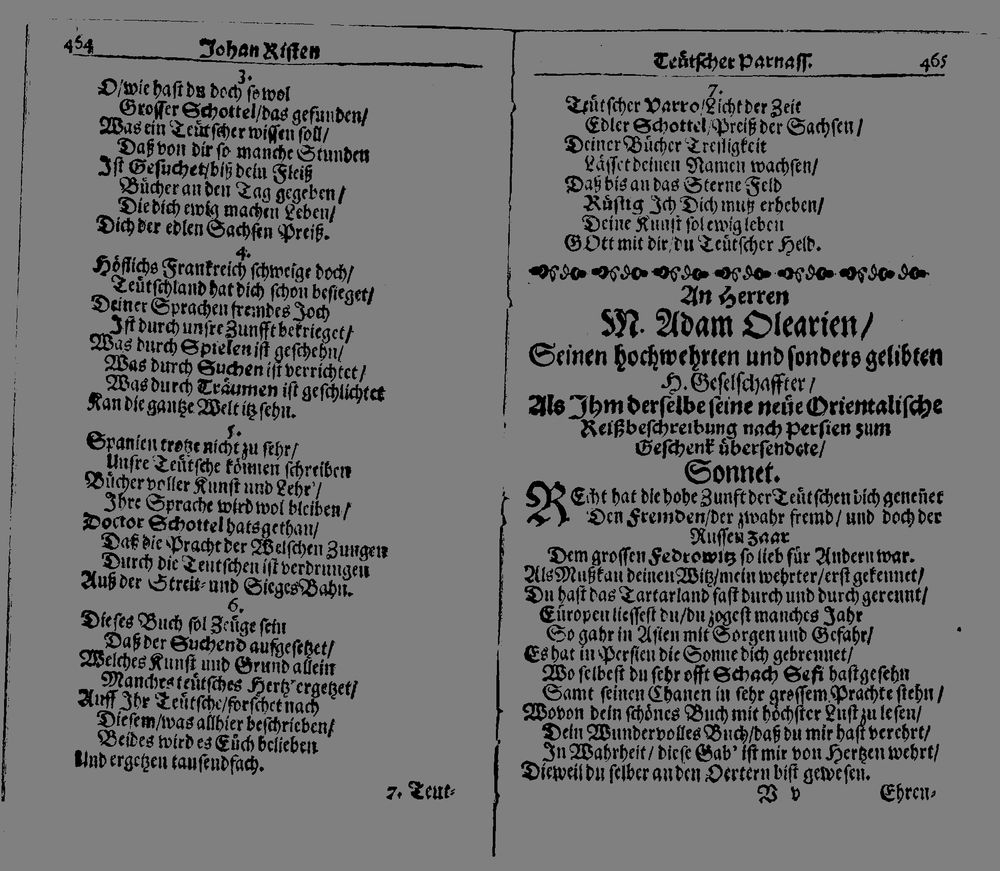 454
Johan Risten
3.
O/wie hast du doch so wol
Grosser Schottel/das gefunden/
Was ein Teütscher wissen soll/
Daß von dir so manche Stunden
Ist Gesuchet/biß dein Fleiß
Bücher an den Tag gegeben/
Die dich ewig machen Leben/
Dich der edlen Sachsen Preiß.
4.
Höflichs Frankreich schweige doch/
Teütschland hat dich schon besieget/
Deiner Sprachen fremdes Joch
Ist durch unsre Zunfft bekrieget/
Was durch Spielen ist geschehn/
Was durch Suchen ist verrichtet/
Was durch Träumen ist geschlichtet
Kan die gantze Welt itz sehn.
5.
Spanien trotze nicht zu sehr/
Unsre Teütsche können schreiben
Bücher voller Kunst und Lehr'/
Ihre Sprache wird wol bleiben/
Doctor Schottel hats gethan/
Daß die Pracht der Welschen Zungen
Durch die Teutschen ist verdrungen
Auß der Streit- und Sieges Bahn.
6.
Dieses Buch sol Zeüge sein
Daß der Suchend aufgesetzet/
Welches Kunst und Grund allein
Manches teütsches Hertz' ergetzet/
Auff Ihr Teütsche/forschet nach
Diesem/was allhier beschrieben/
Beides wird es Eüch belieben
Und ergetzen tausendfach.
7. Teut-
Teütscher Parnass.
465
7.
Teütscher Varro/Licht der Zeit
Edler Schottel/Preiß der Sachsen/
Deiner Bücher Trefligkeit
Lässet deinen Namen wachsen/
Daß bis an das Sterne Feld
Rüstig Ich Dich mutz erheben/
Deine Kunst sol ewig leben
GOtt mit dir/du Teütscher Held.
An Herren
M. Adam Olearien/
Seinen hochwehrten und sonders gelibten
H. Geselschaffter/
Als Ihm derselbe seine neüe Orientalische
Reißbeschreibung nach Persien zum
Geschenk übersendete/
Sonnet.
REcht hat die hohe Zunft der Teütschen dich geneñet
Den Fremden/der zwahr fremd/ und doch der
Russen Zaar
Dem grossen Fedrowitz so lieb für Andern war.
Als Mußkau deinen Witz/mein wehrter/erst gekennet/
Du hast das Tartarland fast durch und durch gerennt/
Europen liessest du/du zogest manches Jahr
So gahr in Asien mit Sorgen und Gefahr/
Es hat in Persien die Sonne dich gebrennet/
Wo selbest du sehr offt Schach Sefi hast gesehn
Samt seinen Chanen in sehr grossem Prachte stehn/
Wovon dein schönes Buch mit höchster Lust zu lesen/
Dein Wundervolles Buch/daß du mir hast verehrt/
In Wahrheit/ diese Gab' ist mir von Hertzen wehrt/
Dieweil du selber an den Oertern bist gewesen.
V v
Ehren-